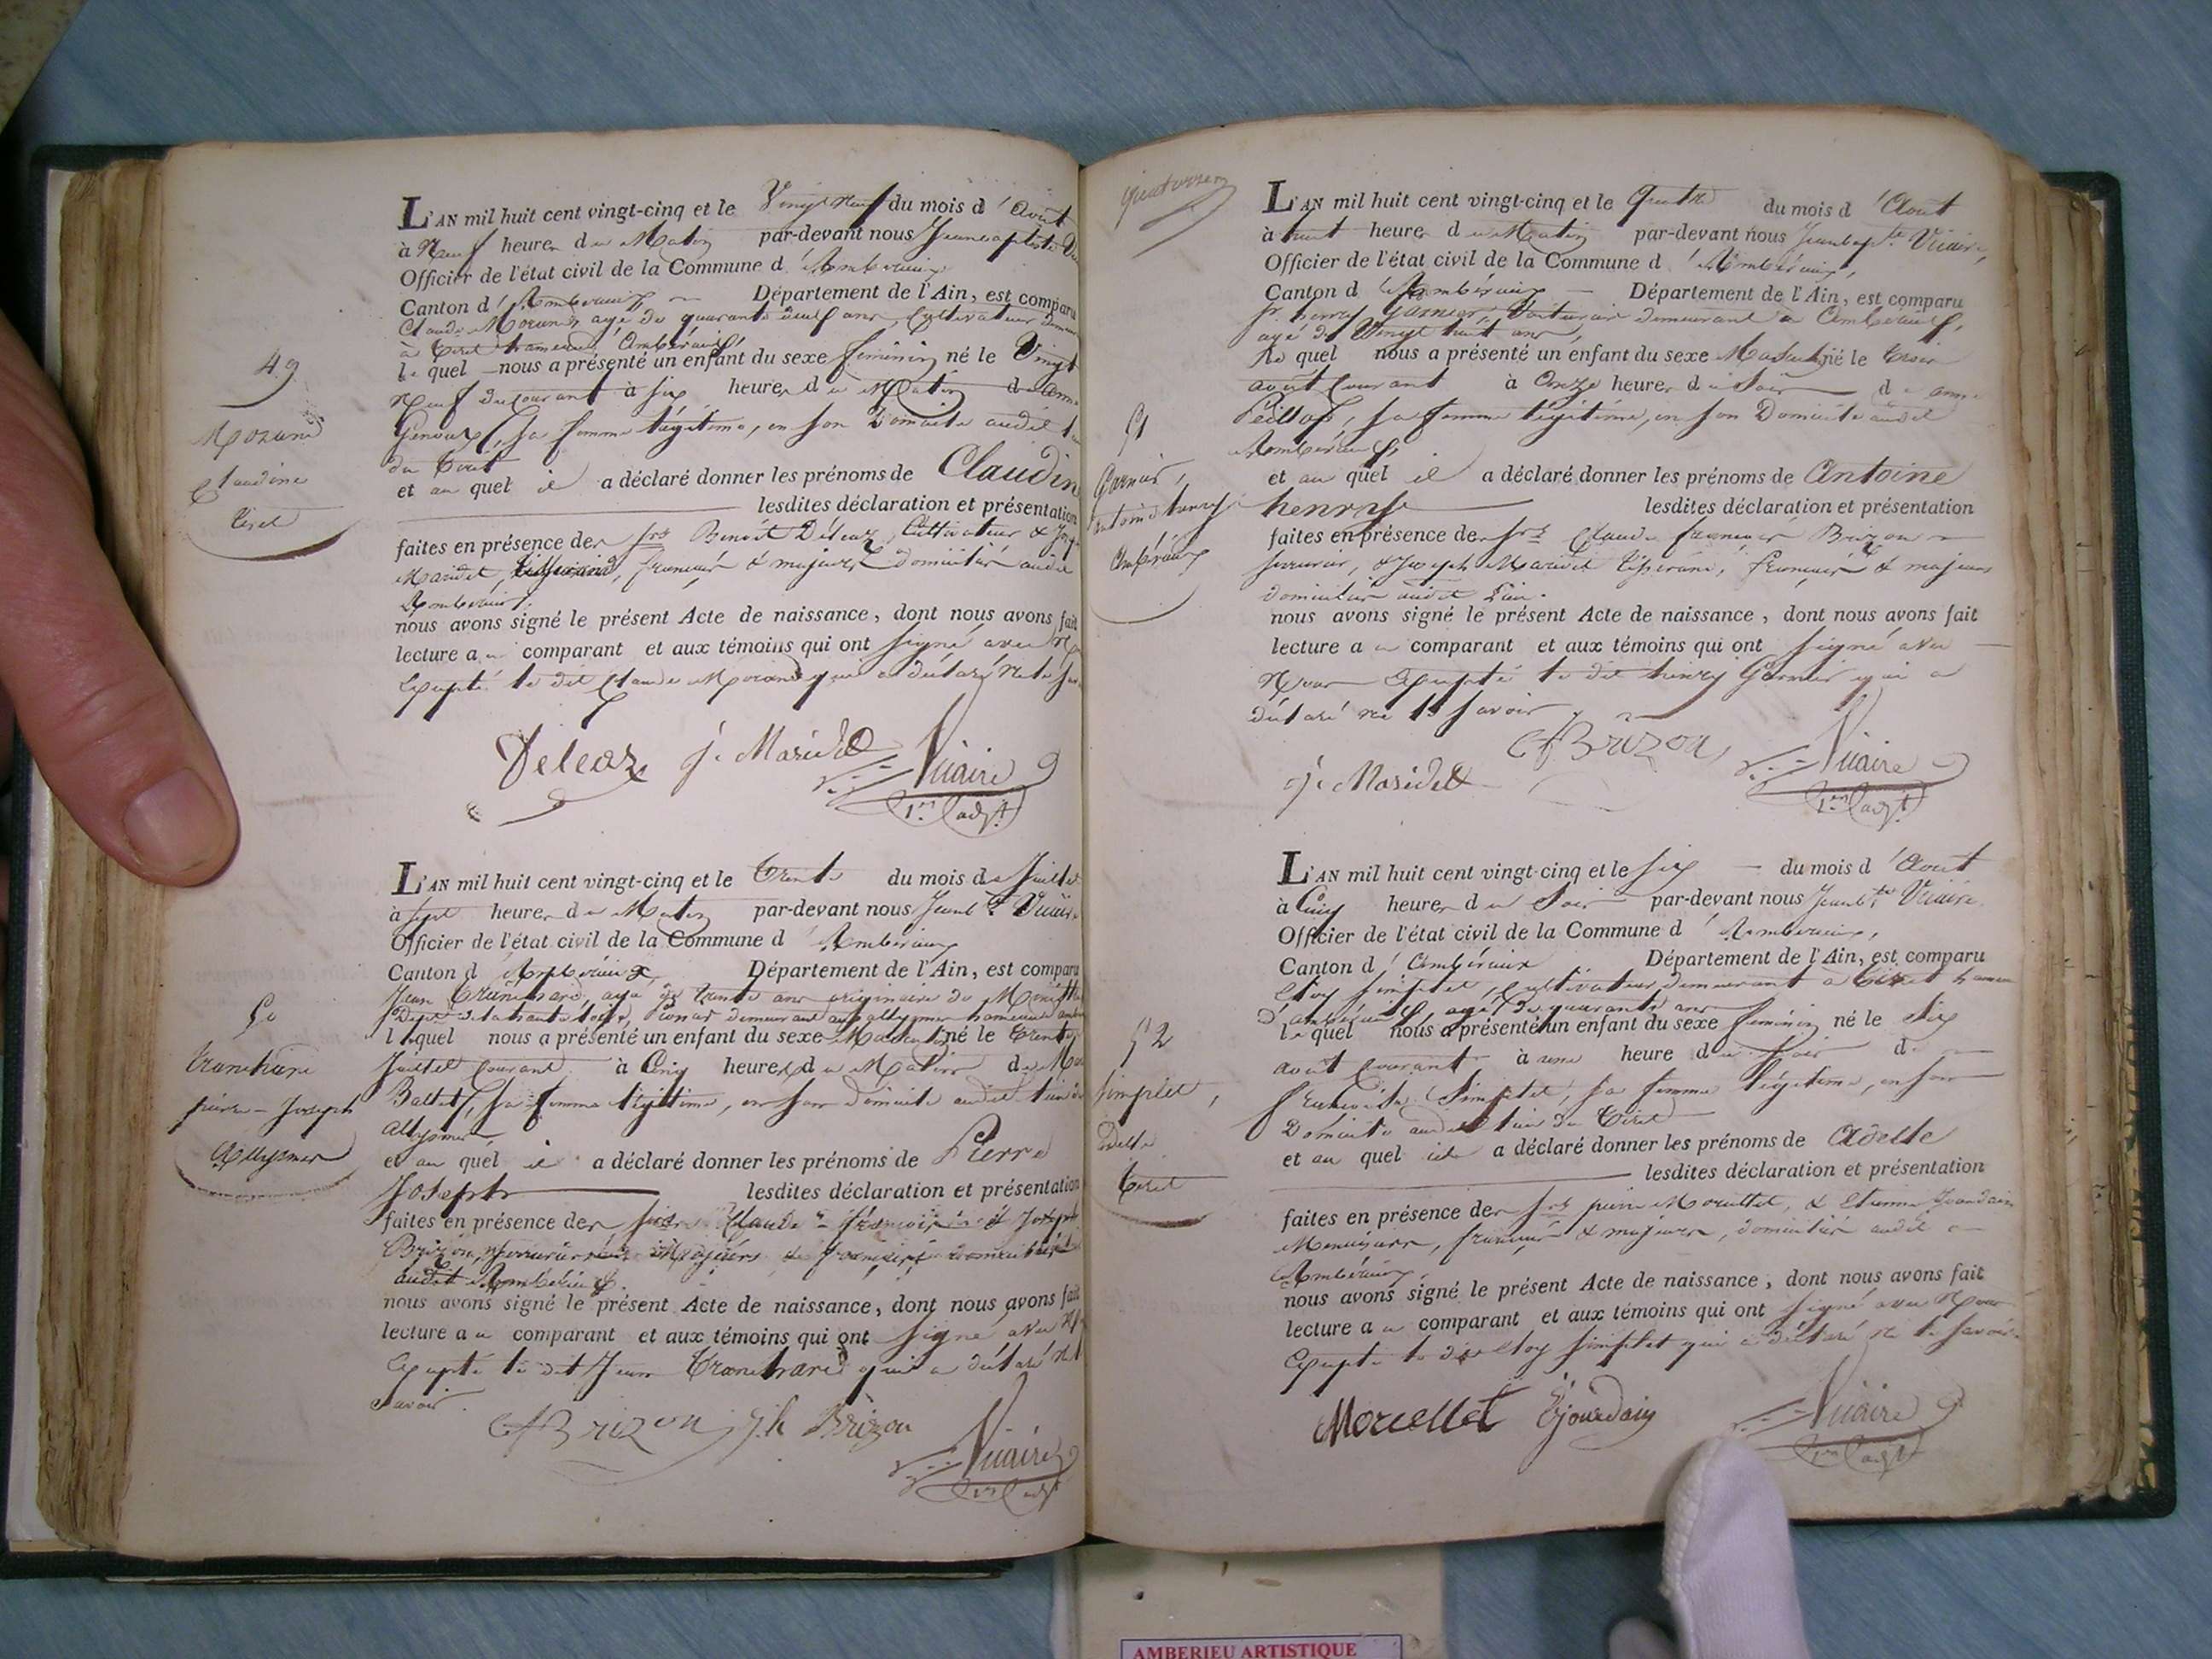 49
Morand
Claudine
Tiret
L'AN mil huit cent vingt-cinq et le Vingt Neuf du mois d'Août
à Neuf heures du Matin par-devant nous Jeanbaptiste
Officier de l'état civil de la Commune d'Ambérieux
Canton d'Ambérieux Département de l'Ain, est comparu
Claude Morand agé de quarante neuf ans, Cultivateur
à Tiret hameau d'Ambérieux,
lequel nous a présenté un enfant du sexe féminin né le Vingt
Neuf du Courant à six heures du Matin de
Genoux, sa femme légitime, en son Domicile audit
du Tiret
et au quel il a déclaré donner les prénoms de Claudin
lesdites déclaration et présentation
faites en présence des srs Benoit Déléaz, Cultivateur &
Maridet, tisserand, français & majeurs domiciliés audit
Ambérieux,
nous avons signé le présent Acte de naissance, dont nous avons fait
lecture au comparant et aux témoins qui ont signé avec
Excepté le dit Claude Morand qui a déclaré ne le
Deleaz J. Maridet Vicaire
1er adjt
50
tranchand
pierre-Joseph
Allymes
L'AN mil huit cent vingt-cinq et le Trente du mois de Juillet
à sept heures du Matin par-devant nous Jeanbte Vicaire
Officier de l'état civil de la Commune d'Ambérieux
Canton d'Ambérieux Département de l'Ain, est comparu
Jean Tranchand agé de trente ans originaire de
demeurant aux allymes hameau
lequel nous a présenté un enfant du sexe Masculin né le Trente
Juillet Courant à Cinq heures du Matin de
Ballet, sa femme légitime, en son domicile audit lieu
allymes
et au quel il a déclaré donner les prénoms de Pierre
Joseph lesdites déclaration et présentation
faites en présence des Claude françois & Joseph
Brizon, serruriers Majeurs & français domiciliés
audit Ambérieux.
nous avons signé le présent Acte de naissance, dont nous avons fait
lecture au comparant et aux témoins qui ont signé avec
Excepté le dit Jean Tranchand qui a déclaré ne le
savoir.
CfBrizon Jh Brizon
Vicaire
1er adjt
quatorze
51
Garnier,
antoine henry
Ambérieux
L'AN mil huit cent vingt-cinq et le Quatre du mois d'Août
à huit heures du Matin par-devant nous Jeanbapte Vicaire,
Officier de l'état civil de la Commune d'Ambérieux,
Canton d'Ambérieux Département de l'Ain, est comparu
sr henry Garnier, Voiturier demeurant à Ambérieux,
agé de Vingt huit ans,
Le quel nous a présenté un enfant du sexe Masculin né le trois
août Courant à Onze heures du Soir d'anne
Peillod, sa femme légitime, en son Domicile audit
Ambérieux,
et au quel il a déclaré donner les prénoms de Antoine
henry lesdites déclaration et présentation
faites en présence des srs Claude françois Brizon
serrurier, & Joseph Maridet tisserand, français & majeurs
domiciliés audit Lieu.
nous avons signé le présent Acte de naissance, dont nous avons fait
lecture au comparant et aux témoins qui ont signé avec
Nous Excepté le dit henry Garnier qui a
déclaré ne le savoir
J. Maridet CfBrizon Vicaire
1er adjt
52
Simplet,
Adelle
Tiret
L'AN mil huit cent vingt-cinq et le six du mois d'Août
à Cinq heures du Soir par-devant nous Jeanbte Vicaire
Officier de l'état civil de la Commune d'Ambérieux,
Canton d'Ambérieux Département de l'Ain, est comparu
Eloy simplet, Cultivateur demeurant à Tiret hameau
d'ambérieux agé de quarante ans
lequel nous a présenté un enfant du sexe féminin né le Six
août Courant à une heure du Soir de
françoise Simplet, sa femme légitime, en son
Domicile audit lieu du Tiret
et au quel il a déclaré donner les prénoms de Adelle
lesdites déclaration et présentation
faites en présence des srs pierre Morcellet, & Etienne Jourdain
Menuisiers, français & majeurs, domiciliés audit
Ambérieux,
nous avons signé le présent Acte de naissance, dont nous avons fait
lecture au comparant et aux témoins qui ont signé avec Nous
Excepté le dit Eloy simplet qui a déclaré ne le savoir
Morcellet Ejourdain Vicaire
1er adjt
AMBERIEU ARTISTIQUE